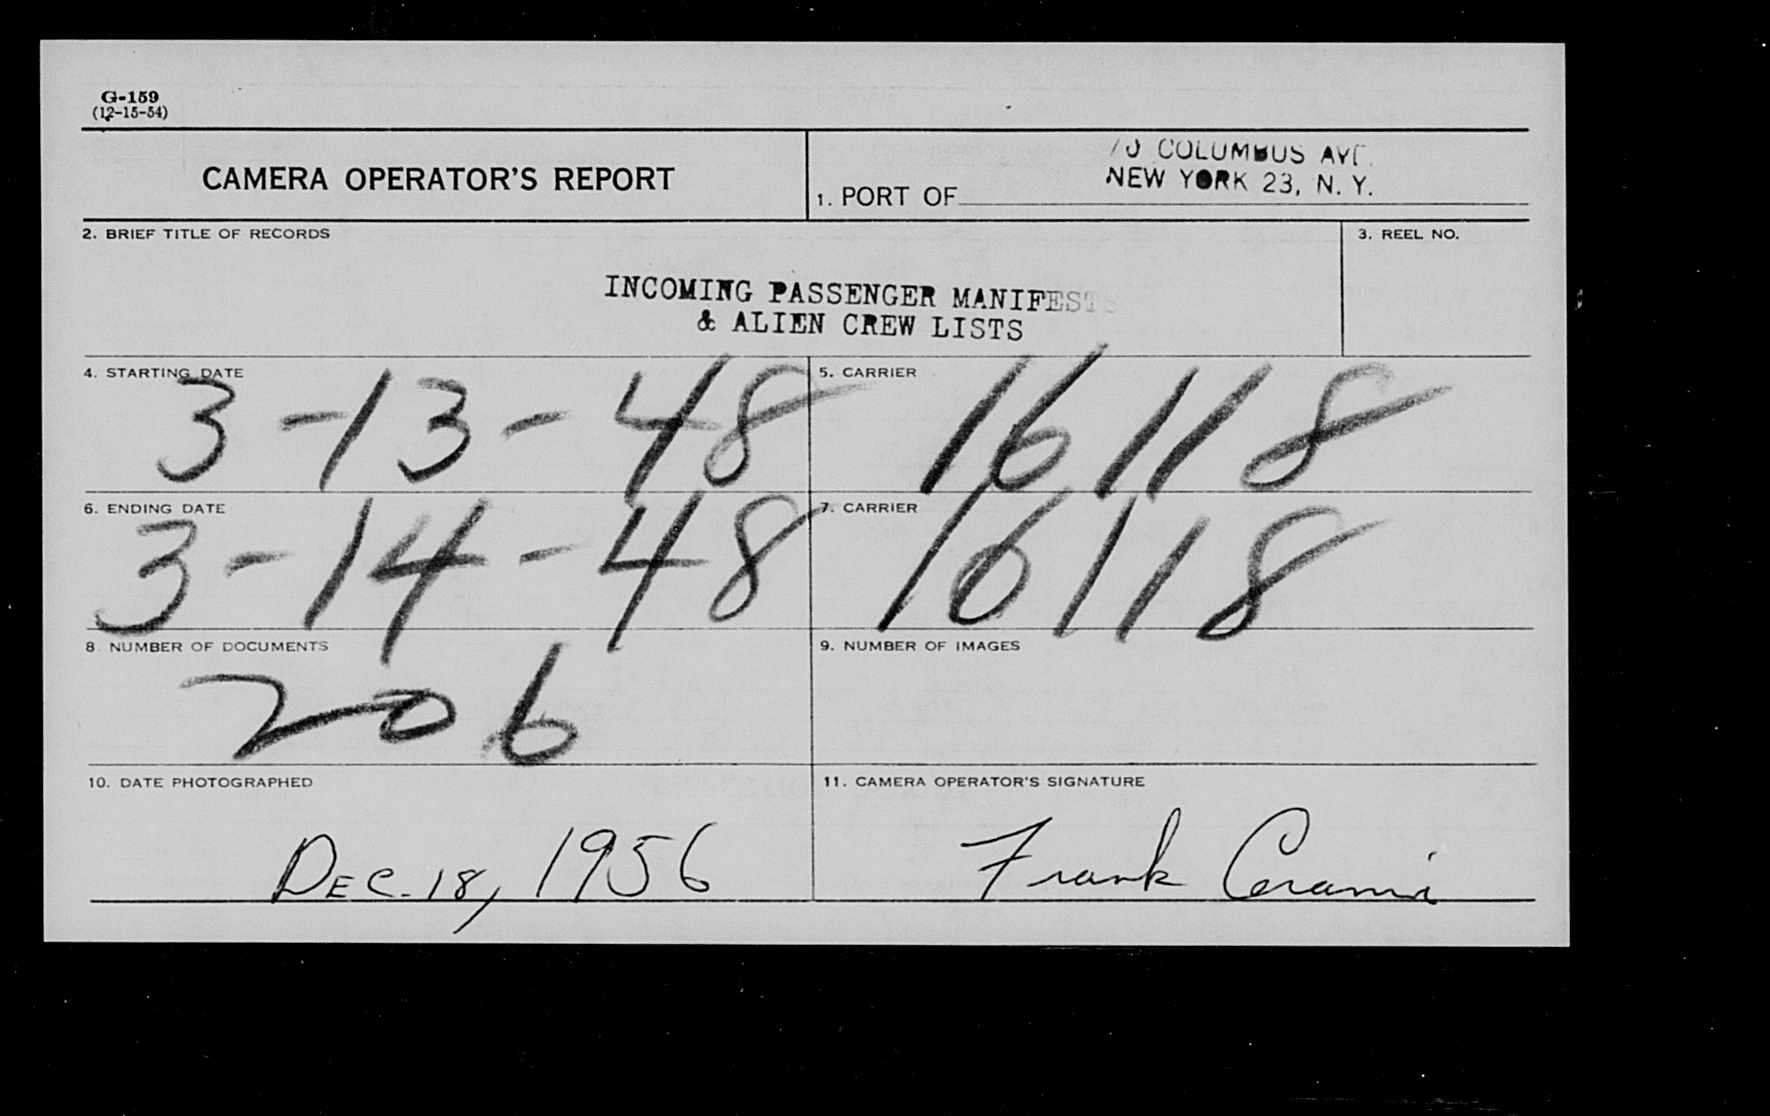 G-159
(12-15-54)
CAMERA OPERATOR'S REPORT
70 COLUMBUS AVE.
NEW YORK 23, N. Y.
1. PORT OF
2. BRIEF TITLE OF RECORDS
3. REEL NO.
INCOMING PASSENGER MANIFESTS
& ALIEN CREW LISTS
4. STARTING DATE
3-13-48
5. CARRIER
16118
6. ENDING DATE
3-14-48
7. CARRIER
16118
8. NUMBER OF DOCUMENTS
206
9. NUMBER OF IMAGES
10. DATE PHOTOGRAPHED
DEC. 18, 1956
11. CAMERA OPERATOR'S SIGNATURE
Frank Cerami